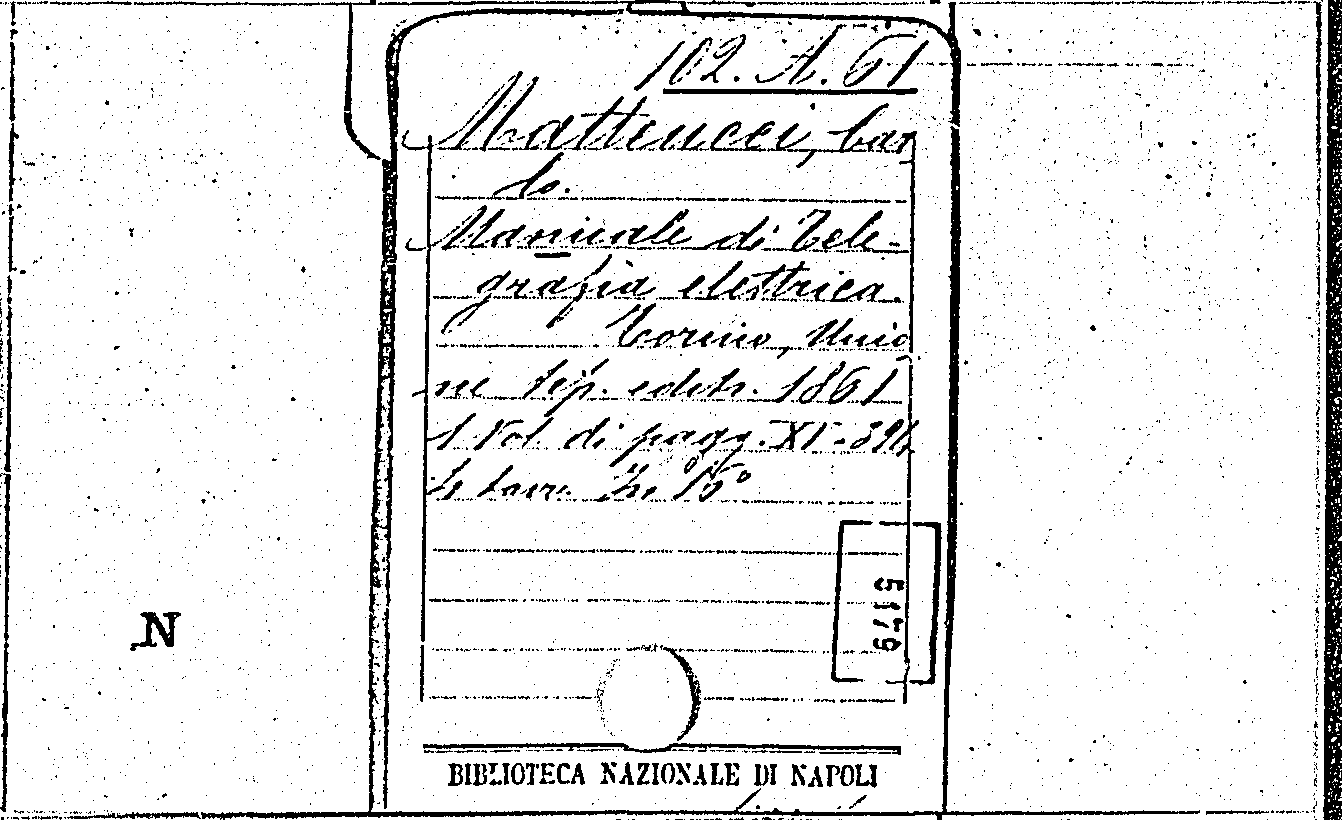 102. A. 61
Matteucci, Car
lo.
Manuale di Tele-
grafia elettrica.
Torino, Unio
ne tip. edit. 1861
1 Vol. di pagg. XV-394
In 16°
5179
N
BIBLIOTECA NAZIONALE DI NAPOLI